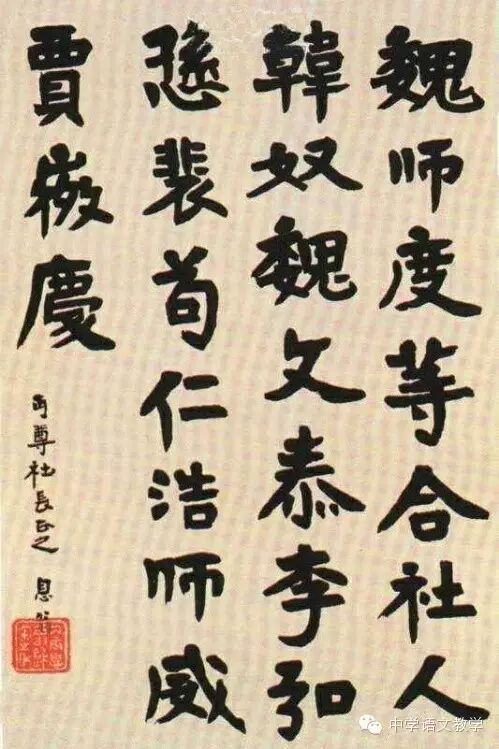 魏师度等合社人
韓奴魏文泰李弘
裴苟仁浩师威
賈微慶
丏尊社長正之 息翁
中学语文教学